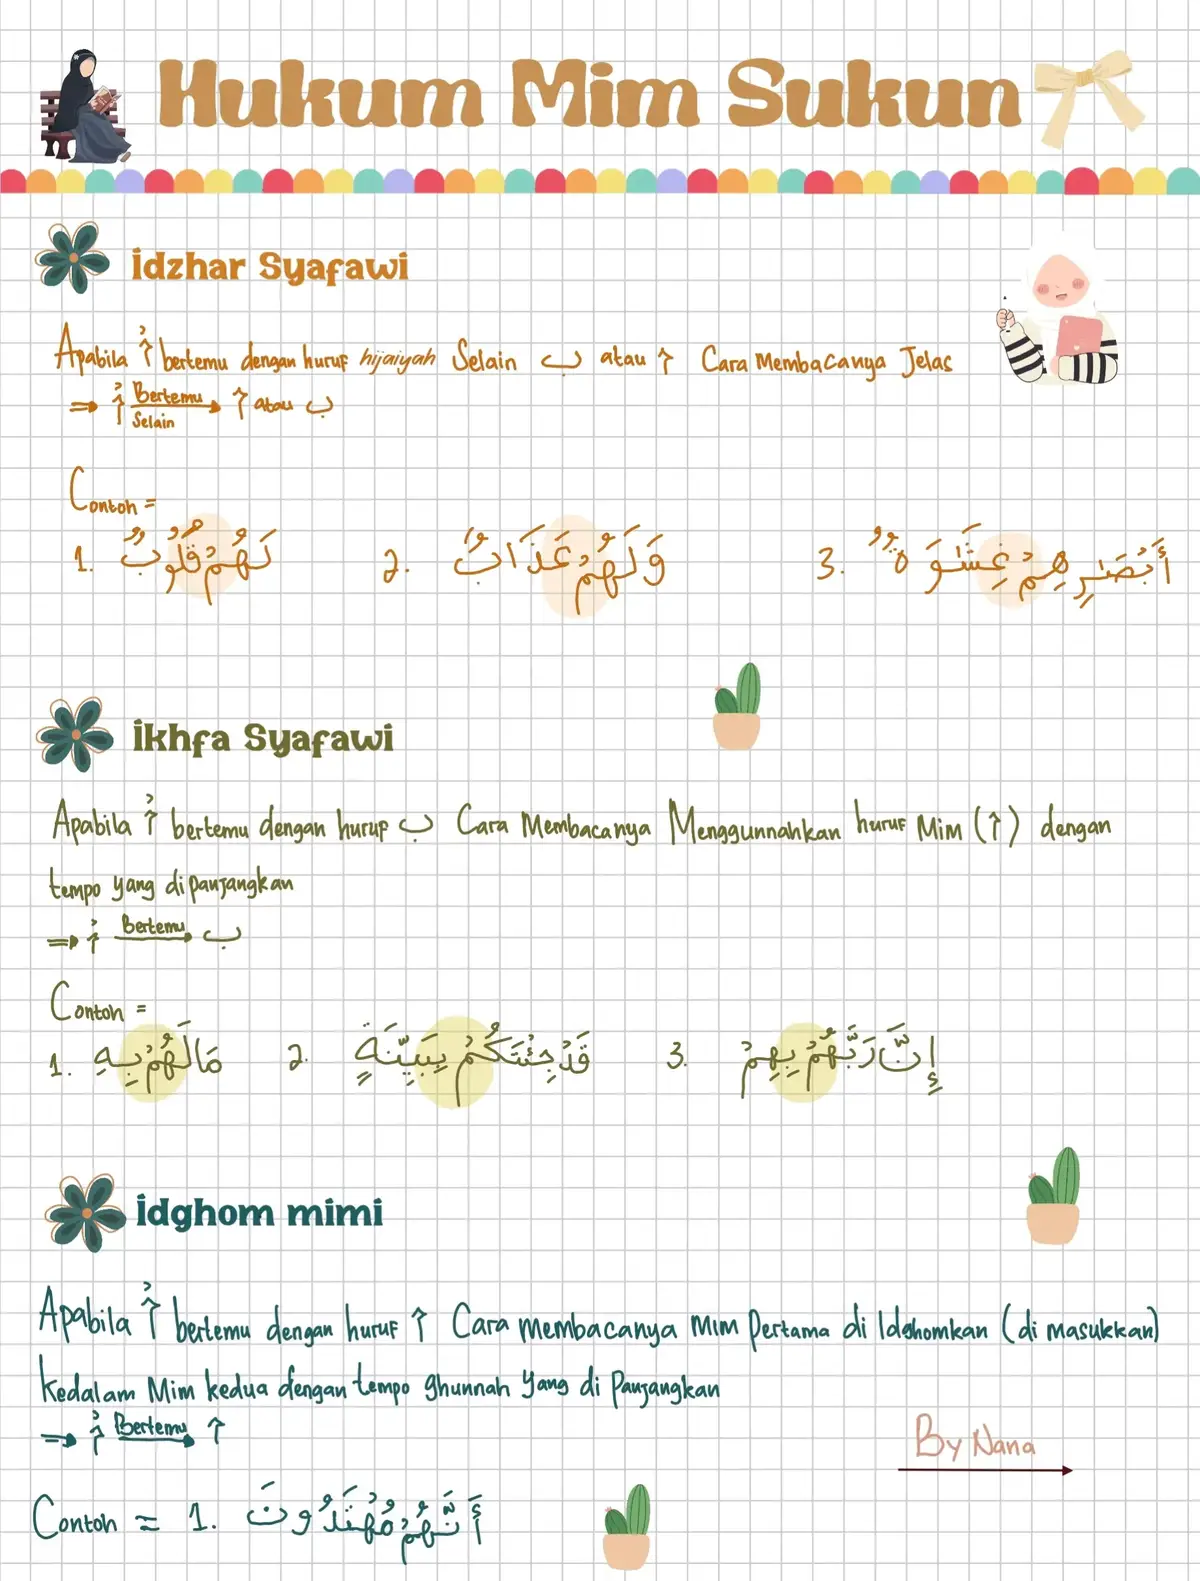 Hukum Mim Sukun
idzhar Syafawi
Apabila مْ bertemu dengan huruf hijaiyah Selain ب atau م Cara Membacanya Jelas
⇒ مْ Bertemu Selain → م atau ب
Contoh =
1. لَهُمْ قُلُوْبٌ 2. وَلَهُمْ عَذَابٌ 3. أَبْصَـٰرِهِمْ غِشَـٰوَةٌ
ikhfa Syafawi
Apabila مْ bertemu dengan huruf ب Cara Membacanya Menggunnahkan huruf Mim (م) dengan
tempo yang dipanjangkan
⇒ مْ Bertemu → ب
Contoh =
1. مَالَهُمْ بِهِ 2. قَدْجِئْتَكُمْ بِبَيِّنَةٍ 3. إِنَّ رَبَّهُمْ بِهِمْ
idghom mimi
Apabila مْ bertemu dengan huruf م Cara membacanya Mim Pertama di Idghomkan (di masukkan)
Kedalam Mim kedua dengan tempo ghunnah yang di Panjangkan
⇒ مْ Bertemu → م
By Nana
Contoh = 1. أَنَّهُمْ مُهْتَدُونَ